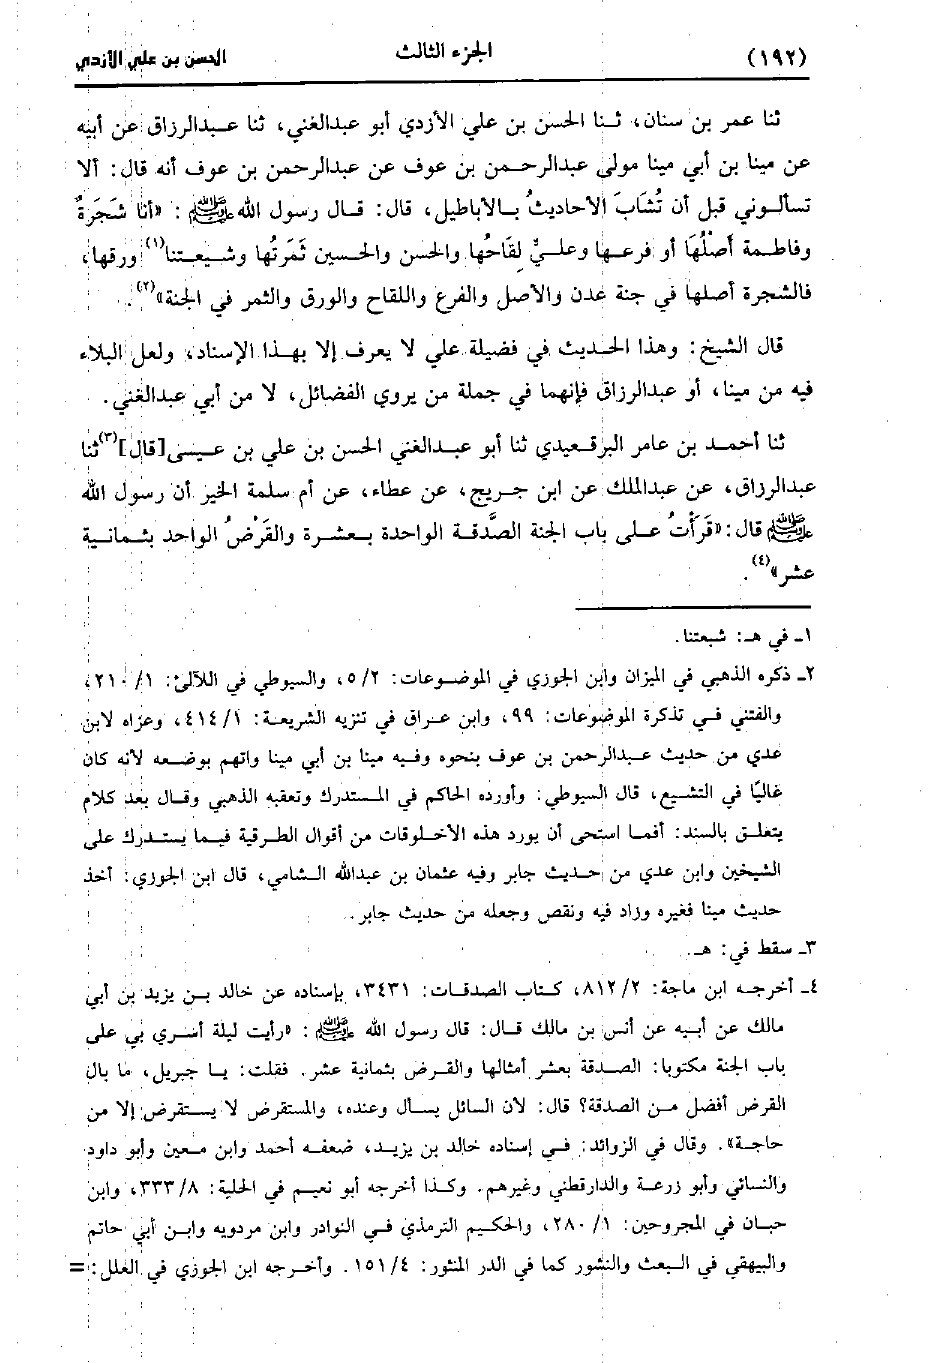 (١٩٢) الجزء الثالث الحسن بن علي الأزدي
ثنا عمر بن سنان، ثنا الحسن بن علي الأزدي أبو عبدالغني، ثنا عبدالرزاق عن أبيه
عن مينا بن أبي مينا مولى عبدالرحمن بن عوف عن عبدالرحمن بن عوف أنه قال: ألا
تسألوني قبل أن تُشَابَ الأحاديثُ بالأباطيل، قال: قال رسول الله ﷺ: «أنا شَجَرَةٌ
وفاطمة أَصْلُهَا أو فرعها وعليٌّ لِقَاحُها والحسن والحسين ثَمَرَتُها وشيعتنا(١) ورقها،
فالشجرة أصلها في جنة عدن والأصل والفرع واللقاح والورق والثمر في الجنة»(٢).
قال الشيخ: وهذا الحديث في فضيلة علي لا يعرف إلا بهذا الإسناد، ولعل البلاء
فيه من مينا، أو عبدالرزاق فإنهما في جملة من يروي الفضائل، لا من أبي عبدالغني.
ثنا أحمد بن عامر البرقعيدي ثنا أبو عبدالغني الحسن بن علي بن عيسى [قال](٣) ثنا
عبدالرزاق، عن عبدالملك عن ابن جريج، عن عطاء، عن أم سلمة الخير أن رسول الله
ﷺ قال: «قَرَأْتُ على باب الجنة الصَّدقة الواحدة بعشرة والقَرْضُ الواحد بثمانية
عشر»(٤).
١ـ في هـ: شبعتنا.
٢ـ ذكره الذهبي في الميزان وابن الجوزي في الموضوعات: ٥/٢، والسيوطي في اللآلئ: ٢١٠/١،
والفتني في تذكرة الموضوعات: ٩٩، وابن عراق في تنزيه الشريعة: ٤١٤/١، وعزاه لابن
عدي من حديث عبدالرحمن بن عوف بنحوه وفيه مينا بن أبي مينا واتهم بوضعه لأنه كان
غاليًا في التشيع، قال السيوطي: وأورده الحاكم في المستدرك وتعقبه الذهبي وقال بعد كلام
يتعلق بالسند: أفما استحى أن يورد هذه الأخلوقات من أقوال الطرقية فيما يستدرك على
الشيخين وابن عدي من حديث جابر وفيه عثمان بن عبدالله الشامي، قال ابن الجوزي: أخذ
حديث مينا فغيره وزاد فيه ونقص وجعله من حديث جابر.
٣ـ سقط في: هـ.
٤ـ أخرجه ابن ماجة: ٨١٢/٢، كتاب الصدقات: ٣٤٣١، بإسناده عن خالد بن يزيد بن أبي
مالك عن أبيه عن أنس بن مالك قال: قال رسول الله ﷺ: «رأيت ليلة أسري بي على
باب الجنة مكتوبا: الصدقة بعشر أمثالها والقرض بثمانية عشر. فقلت: يا جبريل، ما بال
القرض أفضل من الصدقة؟ قال: لأن السائل يسأل وعنده، والمستقرض لا يستقرض إلا من
حاجة». وقال في الزوائد: في إسناده خالد بن يزيد، ضعفه أحمد وابن معين وأبو داود
والنسائي وأبو زرعة والدارقطني وغيرهم. وكذا أخرجه أبو نعيم في الحلية: ٣٣٣/٨، وابن
حبان في المجروحين: ٢٨٠/١، والحكيم الترمذي في النوادر وابن مردويه وابن أبي حاتم
والبيهقي في البعث والنشور كما في الدر المنثور: ١٥١/٤. وأخرجه ابن الجوزي في العلل: =